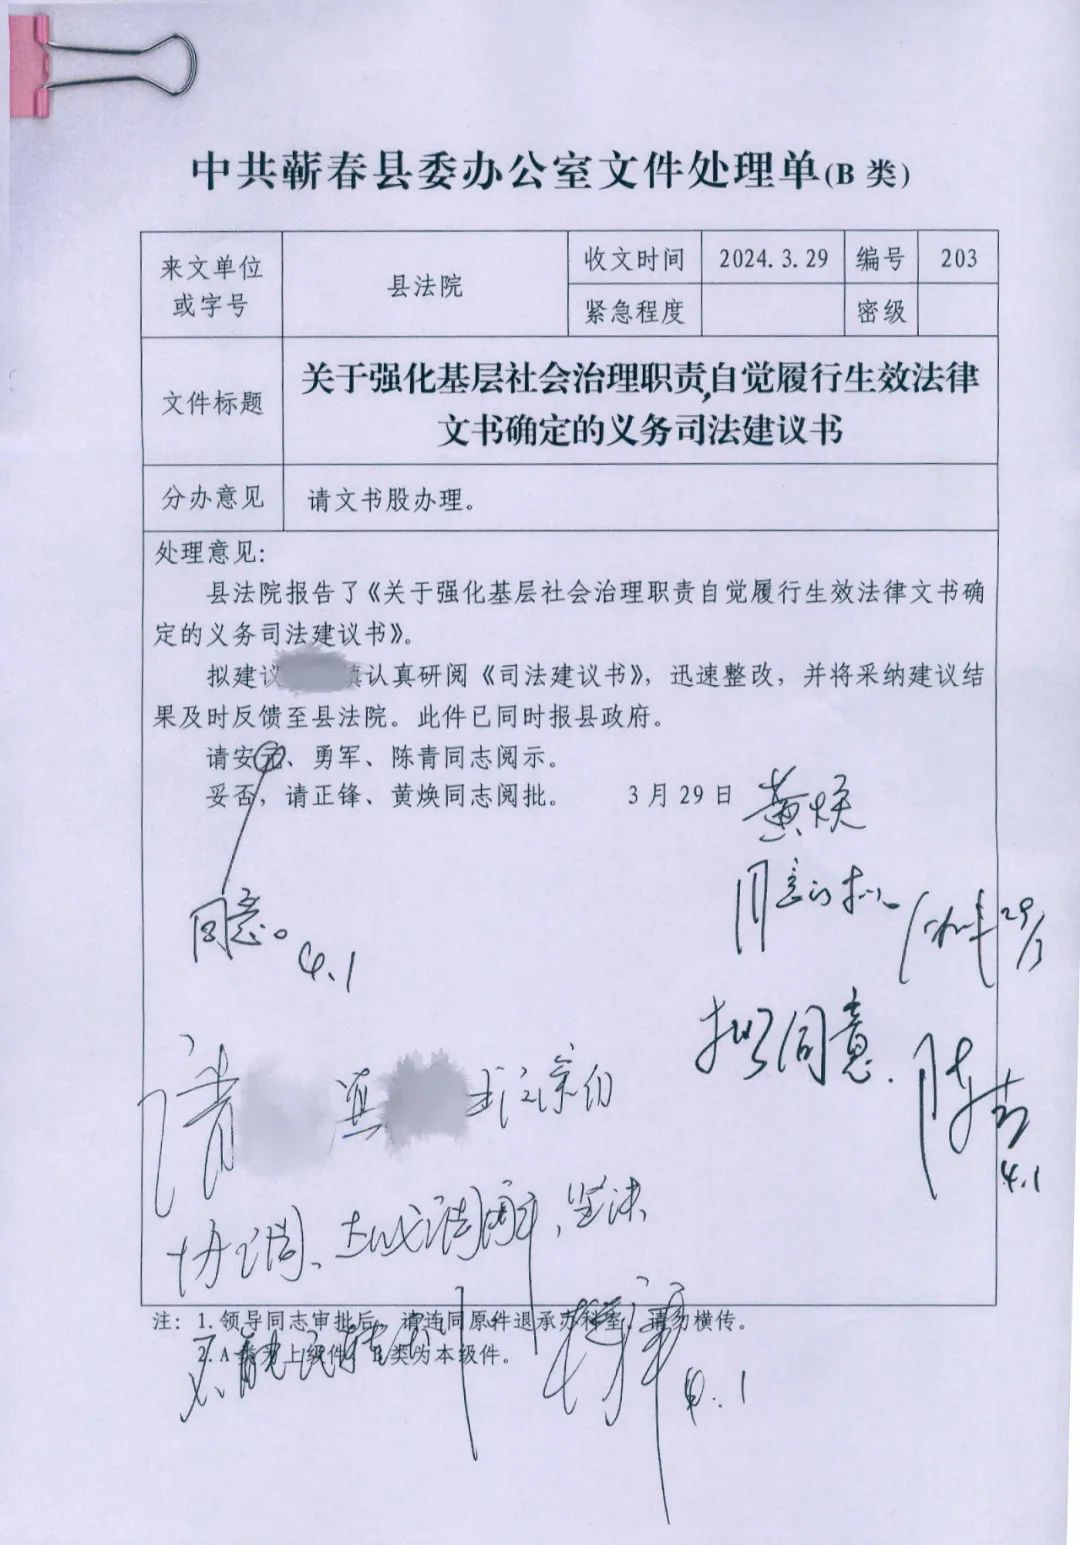 中共蕲春县委办公室文件处理单(B 类)
来文单位
或字号
县法院
收文时间
2024.3.29
编号
203
紧急程度
密级
文件标题
关于强化基层社会治理职责,自觉履行生效法律
文书确定的义务司法建议书
分办意见
请文书股办理。
处理意见:
县法院报告了《关于强化基层社会治理职责自觉履行生效法律文书确
定的义务司法建议书》。
拟建议镇认真研阅《司法建议书》，迅速整改，并将采纳建议结
果及时反馈至县法院。此件已同时报县政府。
请安元、勇军、陈青同志阅示。
妥否，请正锋、黄焕同志阅批。 3月29日
黄焕
同意。
4.1
同意的拟
29/3
拟同意.
陈青
4.1
请 镇
协调、
坚决
注: 1.领导同志审批后，请连同原件退承办科室，请勿横传。
2.A类为上级件，B类为本级件。
4.1